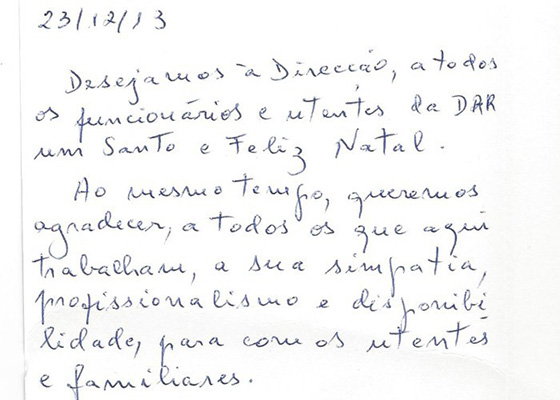 23/12/13
Desejamos à Direcção, a todos
os funcionários e utentes da DAR
um Santo e Feliz Natal.
Ao mesmo tempo, queremos
agradecer, a todos os que aqui
trabalham, a sua simpatia,
profissionalismo e disponibi
lidade, para com os utentes
e familiares.